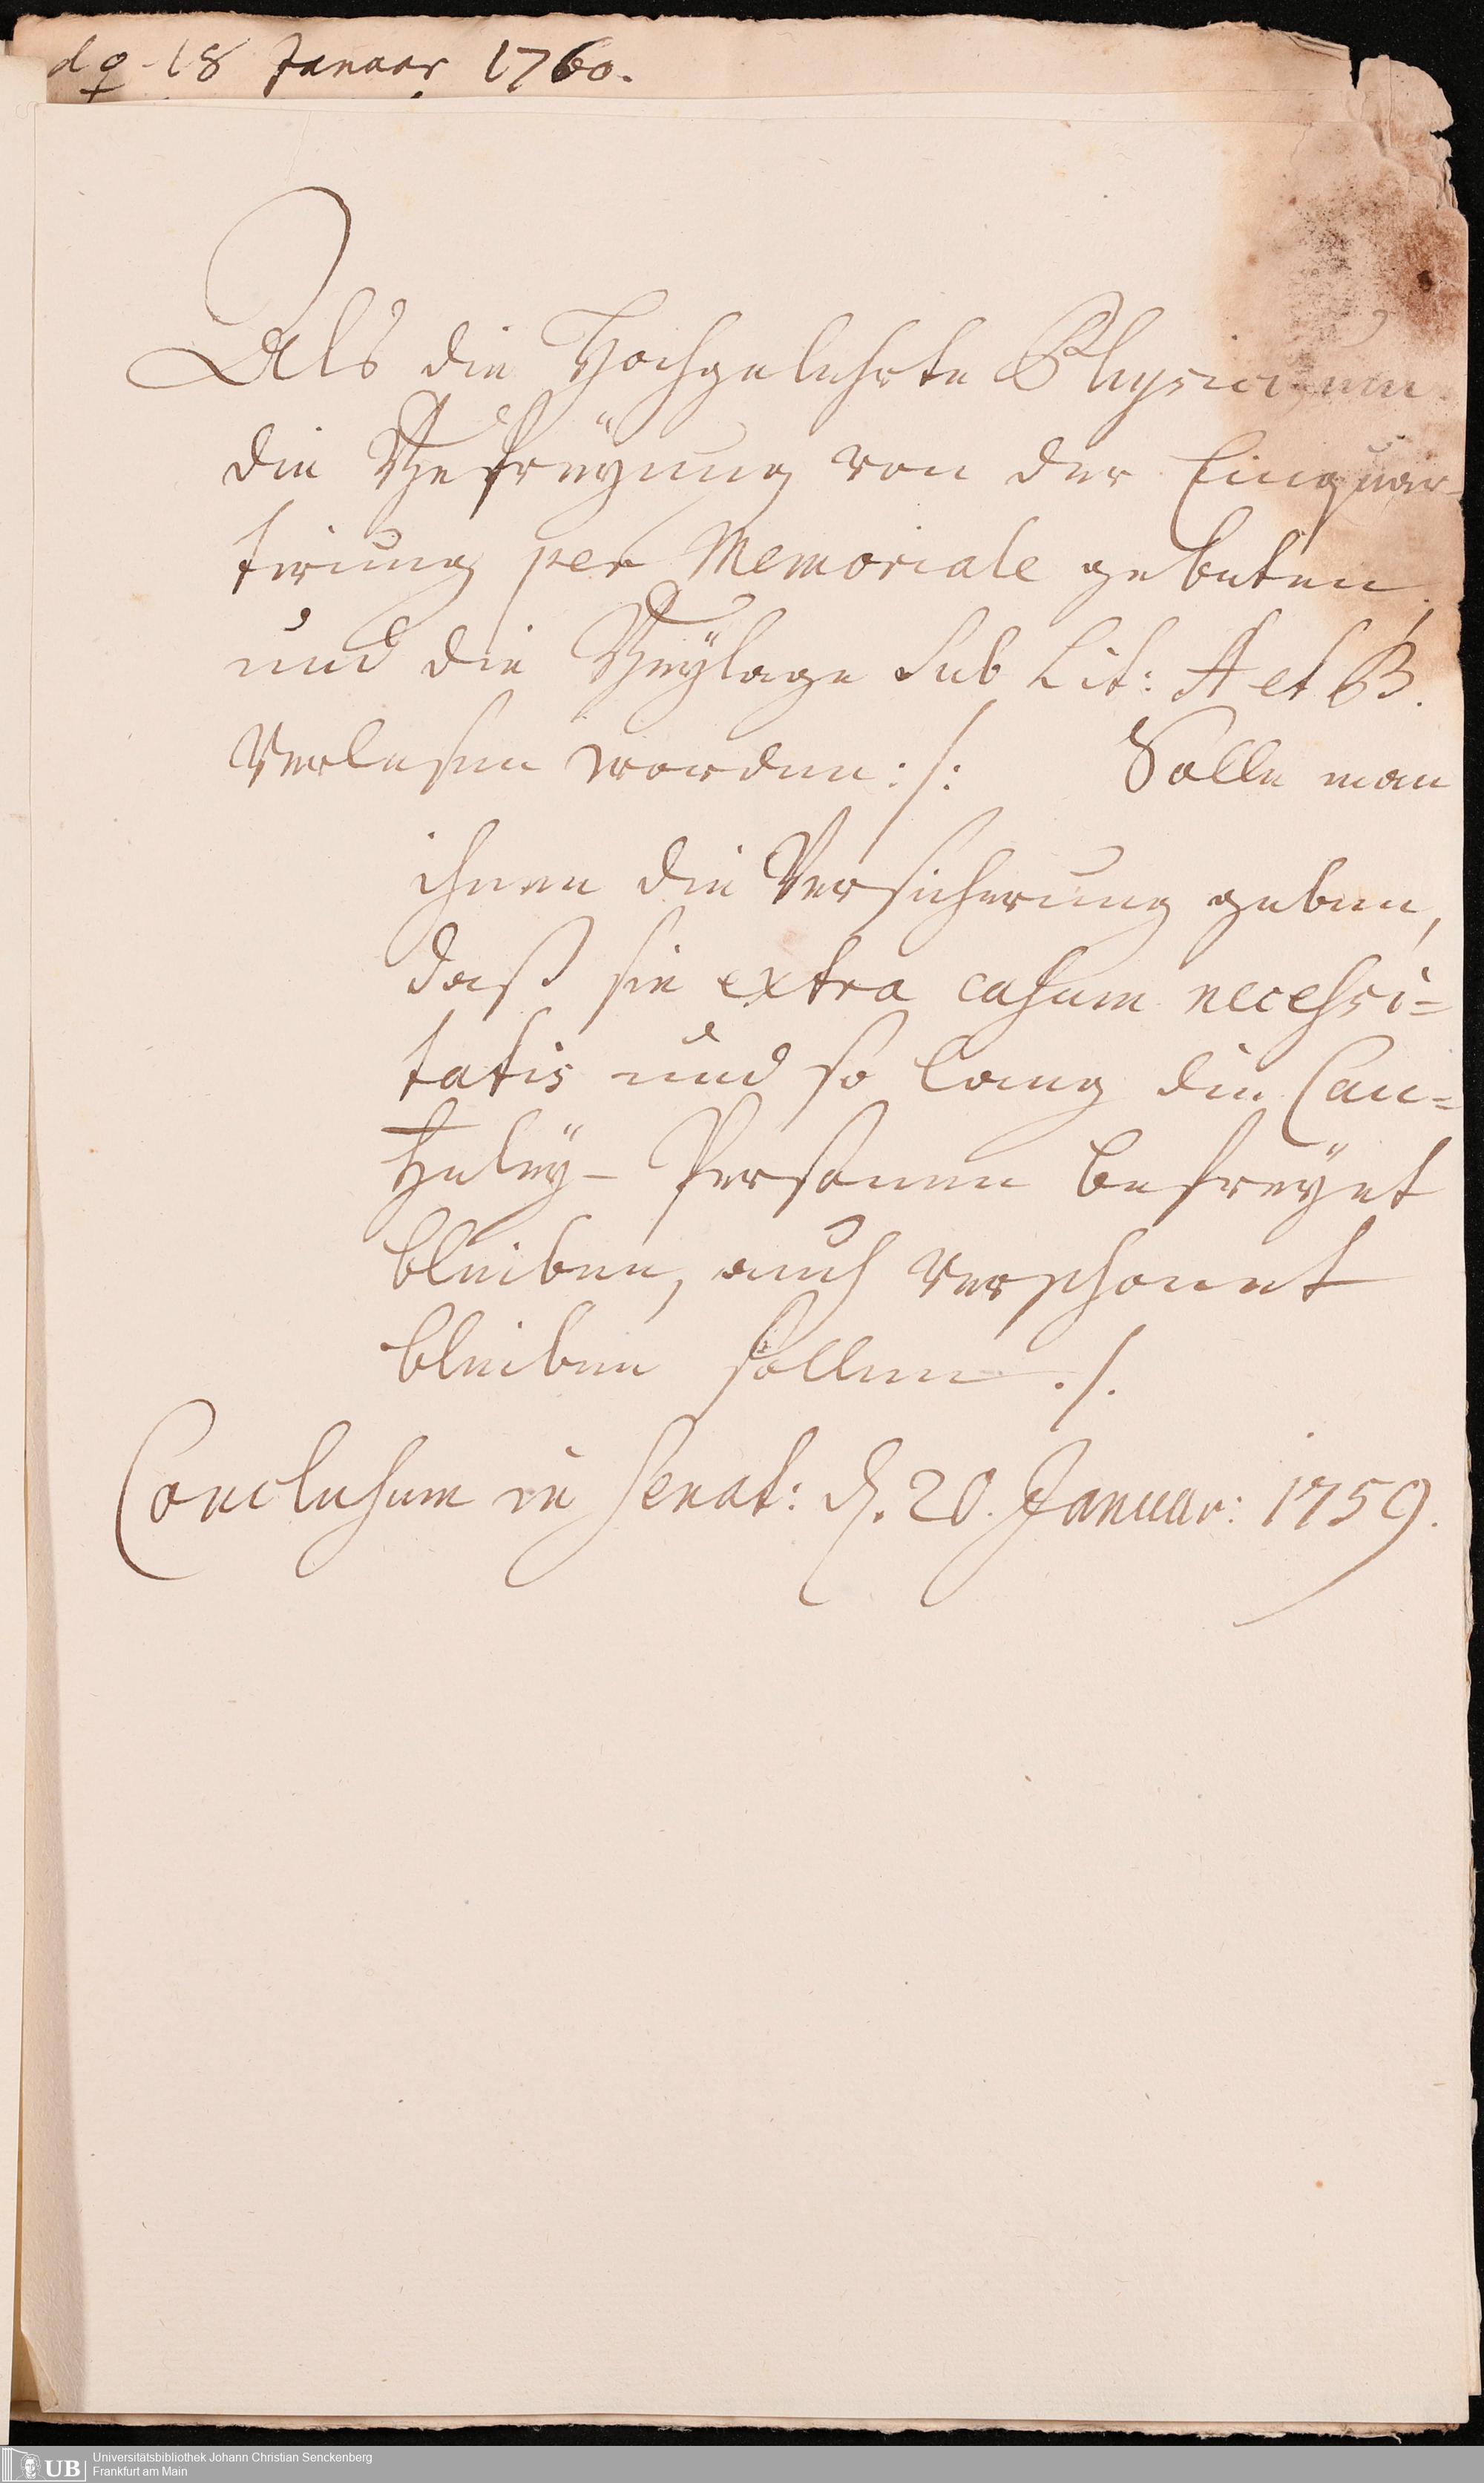 d ♀ 18 Januar 1760.
Als die Hochgelehrte Physici um
die Befreÿung von der Einquar-
tirung per Memoriale gebeten,
und die Beÿlage sub Lit: A et B.
verlesen worden :/: Solle man
ihnen die Versicherung geben,
daß sie extra casum necessi=
tatis und so lang die Can=
tzeleÿ-Personen befreÿet
bleiben, auch verschonet
bleiben sollen ./.
Conclusum in Senat: d. 20. Januar: 1759.
UB
Universitätsbibliothek Johann Christian Senckenberg
Frankfurt am Main